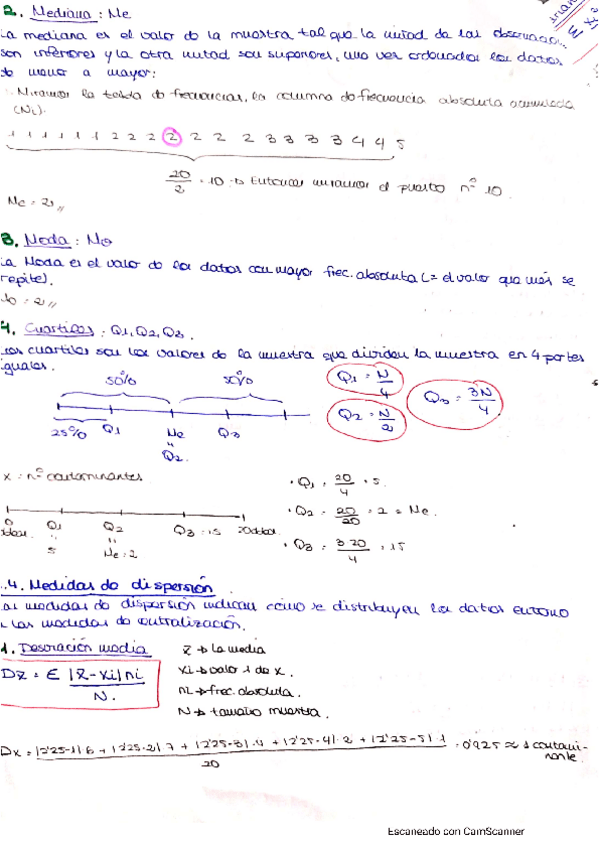 2. Mediana : Me
La mediana es el valor de la muestra tal que la mitad de las observacio...
son inferiores y la otra mitad son superiores, una vez ordenados los datos
de menor a mayor:
Miramos la tabla de frecuencias, en columna de frecuencia absoluta acumulada
(Ni).
1 1 1 1 1 1 2 2 2 2 2 2 2 3 3 3 3 4 4 5
20/2 = 10 → Entonces miramos el puesto nº 10.
Me = 2,,
3. Moda : Mo
La Moda es el valor de los datos con mayor frec. absoluta (= el valor que más se
repite).
Mo = 2,,
4. Cuartiles : Q1, Q2, Q3.
Los cuartiles son los valores de la muestra que dividen la muestra en 4 partes
iguales.
50% 50%
Q1 = N/4
Q2 = N/2
Q3 = 3N/4
25% Q1 Me Q3
"
Q2
x = nº contaminantes
· Q1 = 20/4 = 5.
· Q2 = 20/20 = 2 = Me.
· Q3 = 3·20/4 = 15
0 Q1 Q2 Q3 = 15 20 datos
datos " "
5 Me = 2
.4. Medidas de dispersión
Las medidas de dispersión indican cómo se distribuyen los datos entorno
a las medidas de centralización.
1. Desviación media
x̄ → la media
Dx̄ = Σ |x̄ - xi| ni / N.
xi → valor 1 de x.
ni → frec. absoluta.
N → tamaño muestra.
Dx = |2'25-1| 6 + |2'25-2| 7 + |2'25-3| · 4 + |2'25-4| · 2 + |2'25-5| 1 / 20 = 0'925 ≈ 1 contami-
nante.
Escaneado con CamScanner